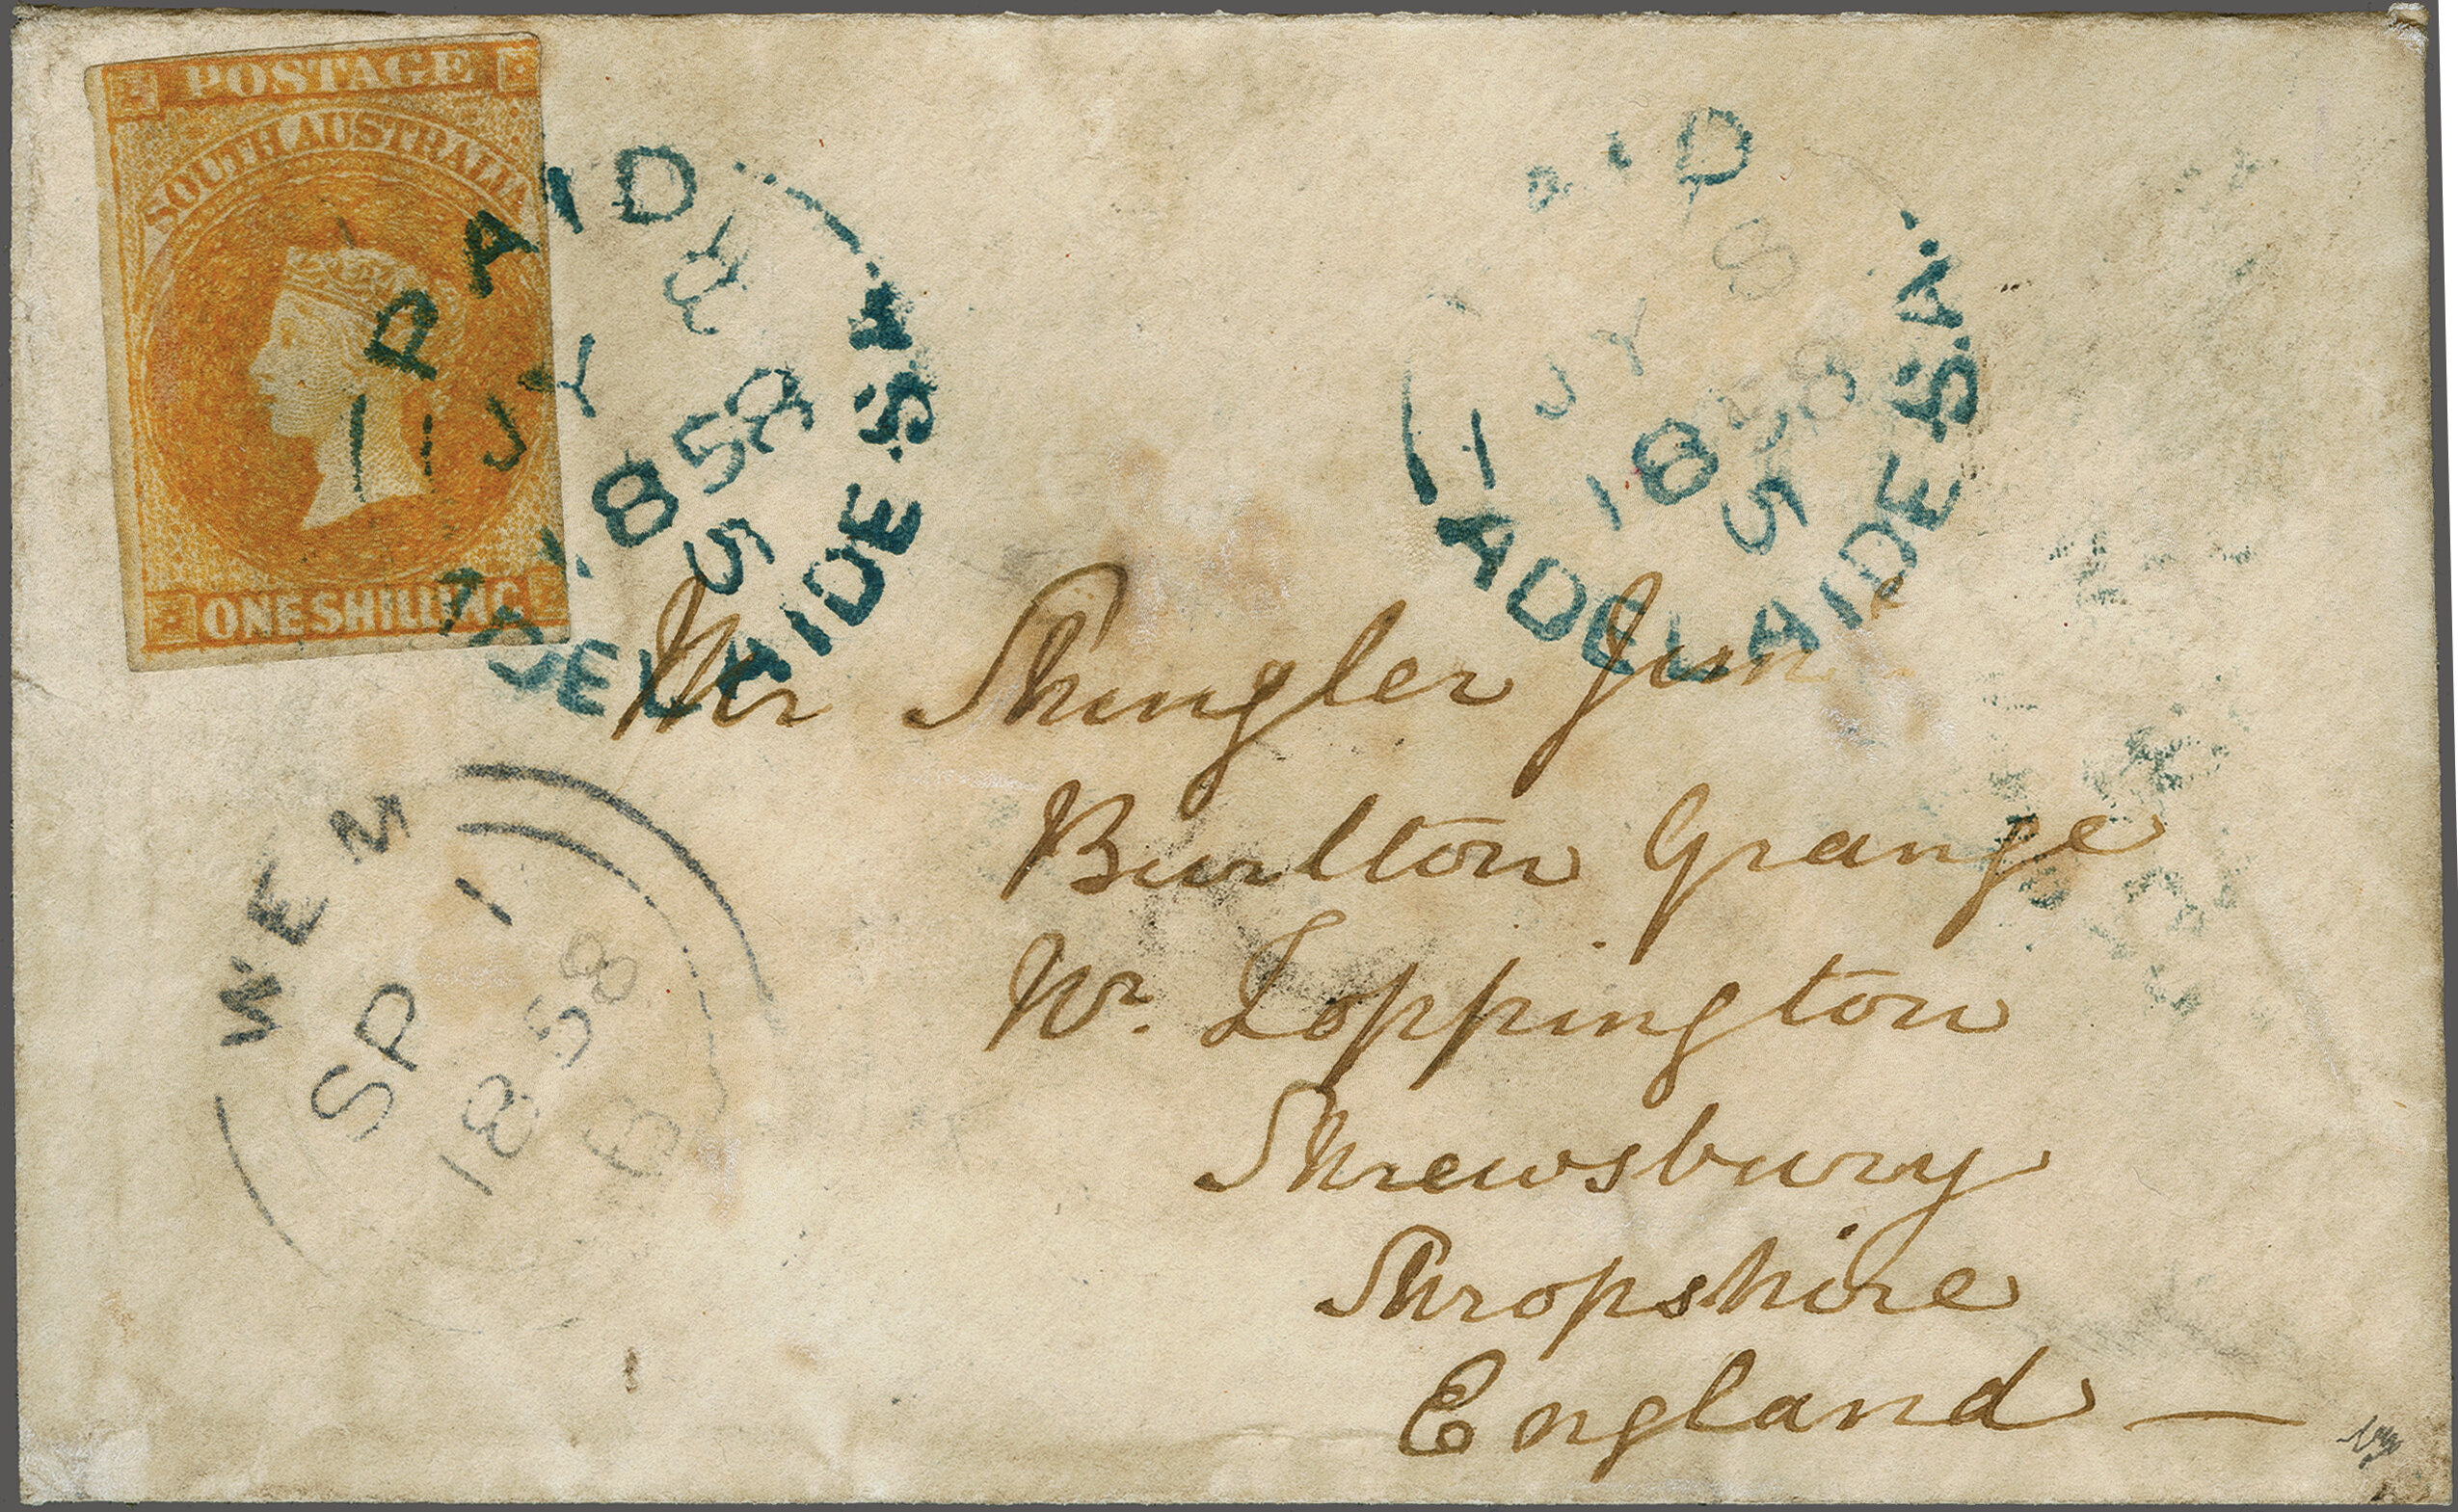 POSTAGE
SOUTH AUSTRALIA
ONE SHILLING
PAID
JY
1858
5
ADELAIDE S.A
8
JY
1858
5
ADELAIDE S.A
Mr Shingler Jun
Burlton Grange
Nr. Loppington
Shrewsbury
Shropshire
England —
WEM
SP 1
1858
B